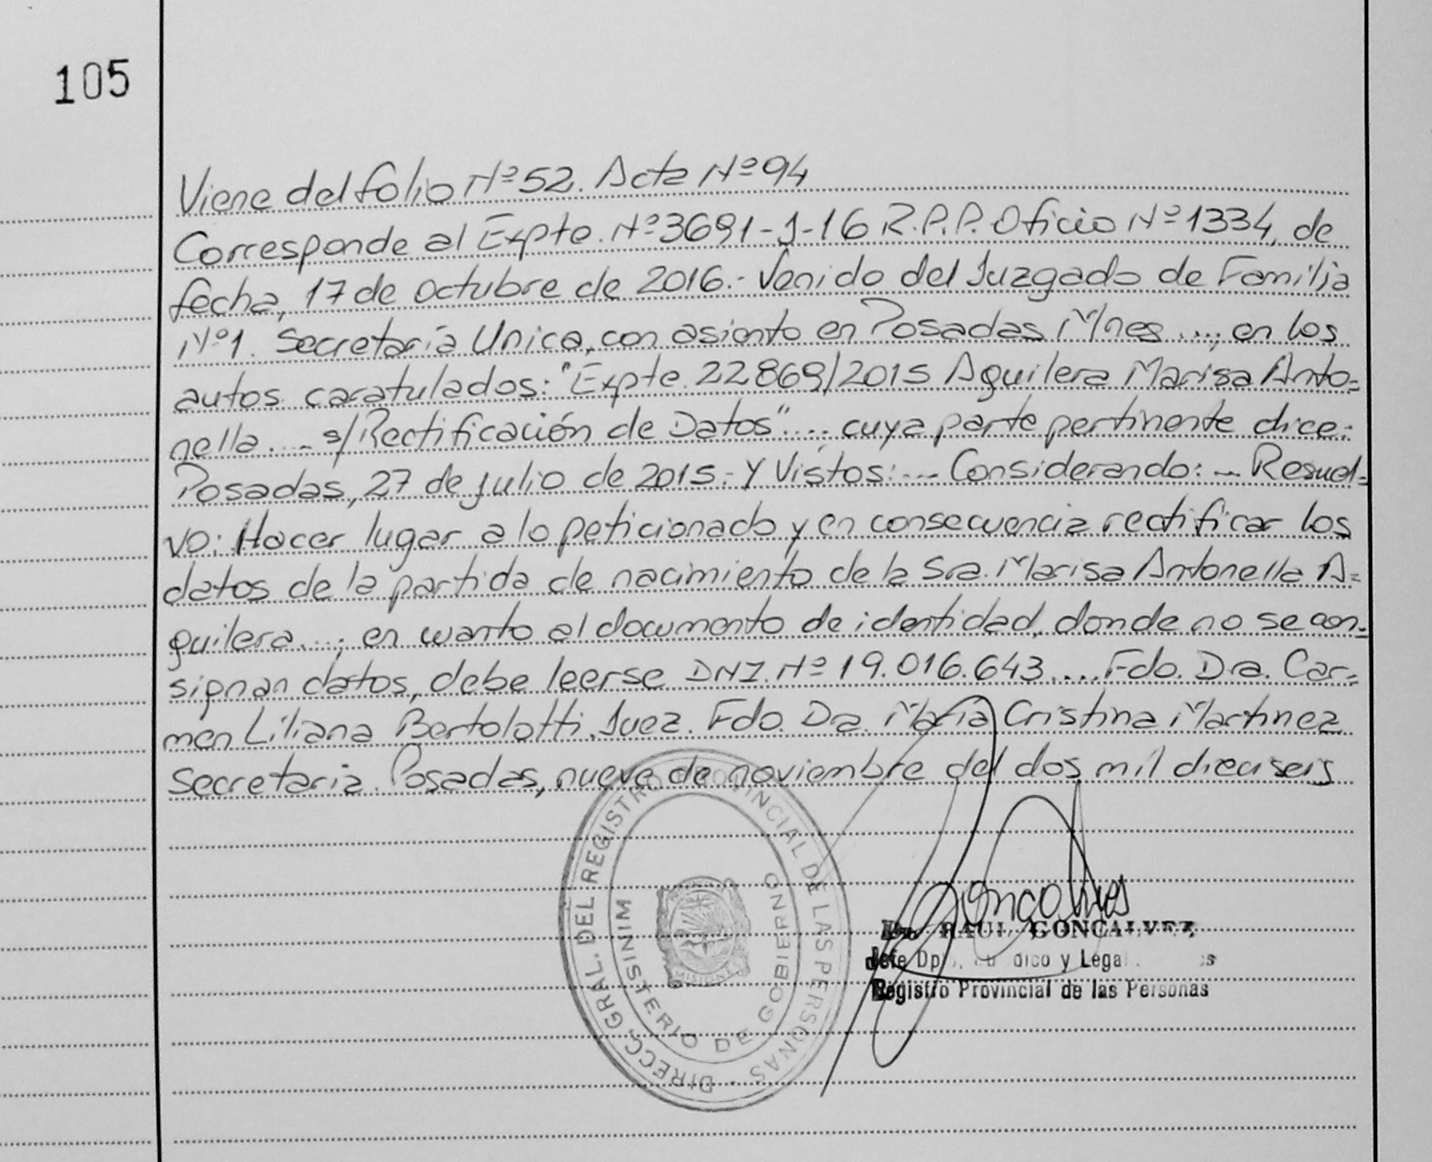 105
Viene del folio Nº 52. Acta Nº 94
Corresponde al Expte. Nº 3691-J-16 R.P.P. Oficio Nº 1334, de
fecha, 17 de octubre de 2016.- Venido del Juzgado de Familia
Nº1. Secretaría Unica, con asiento en Posadas Mnes ...; en los
autos caratulados: "Expte. 22869/2015 Aguilera Marisa Anto=
nella .... s/Rectificación de Datos" ....; cuya parte pertinente dice:
Posadas, 27 de julio de 2015.- Y Vistos: ... Considerando: ... Resuel=
vo: Hacer lugar a lo peticionado y en consecuencia rectificar los
datos de la partida de nacimiento de la Sra. Marisa Antonella A=
guilera ...; en cuanto al documento de identidad, donde no se con=
signan datos, debe leerse DNI. Nº 19.016.643.... Fdo. Dra. Car=
men Liliana Bertolotti. Juez. Fdo. Dra. María Cristina Martinez
Secretaria. Posadas, nueve de noviembre del dos mil dieciseis
DIRECC. GRAL. DEL REGISTRO PROVINCIAL DE LAS PERSONAS
MINISTERIO DE GOBIERNO
MISIONES
Goncalves
Dr. RAUL GONCALVEZ
Jefe Dp y Lega
Registro Provincial de las Personas